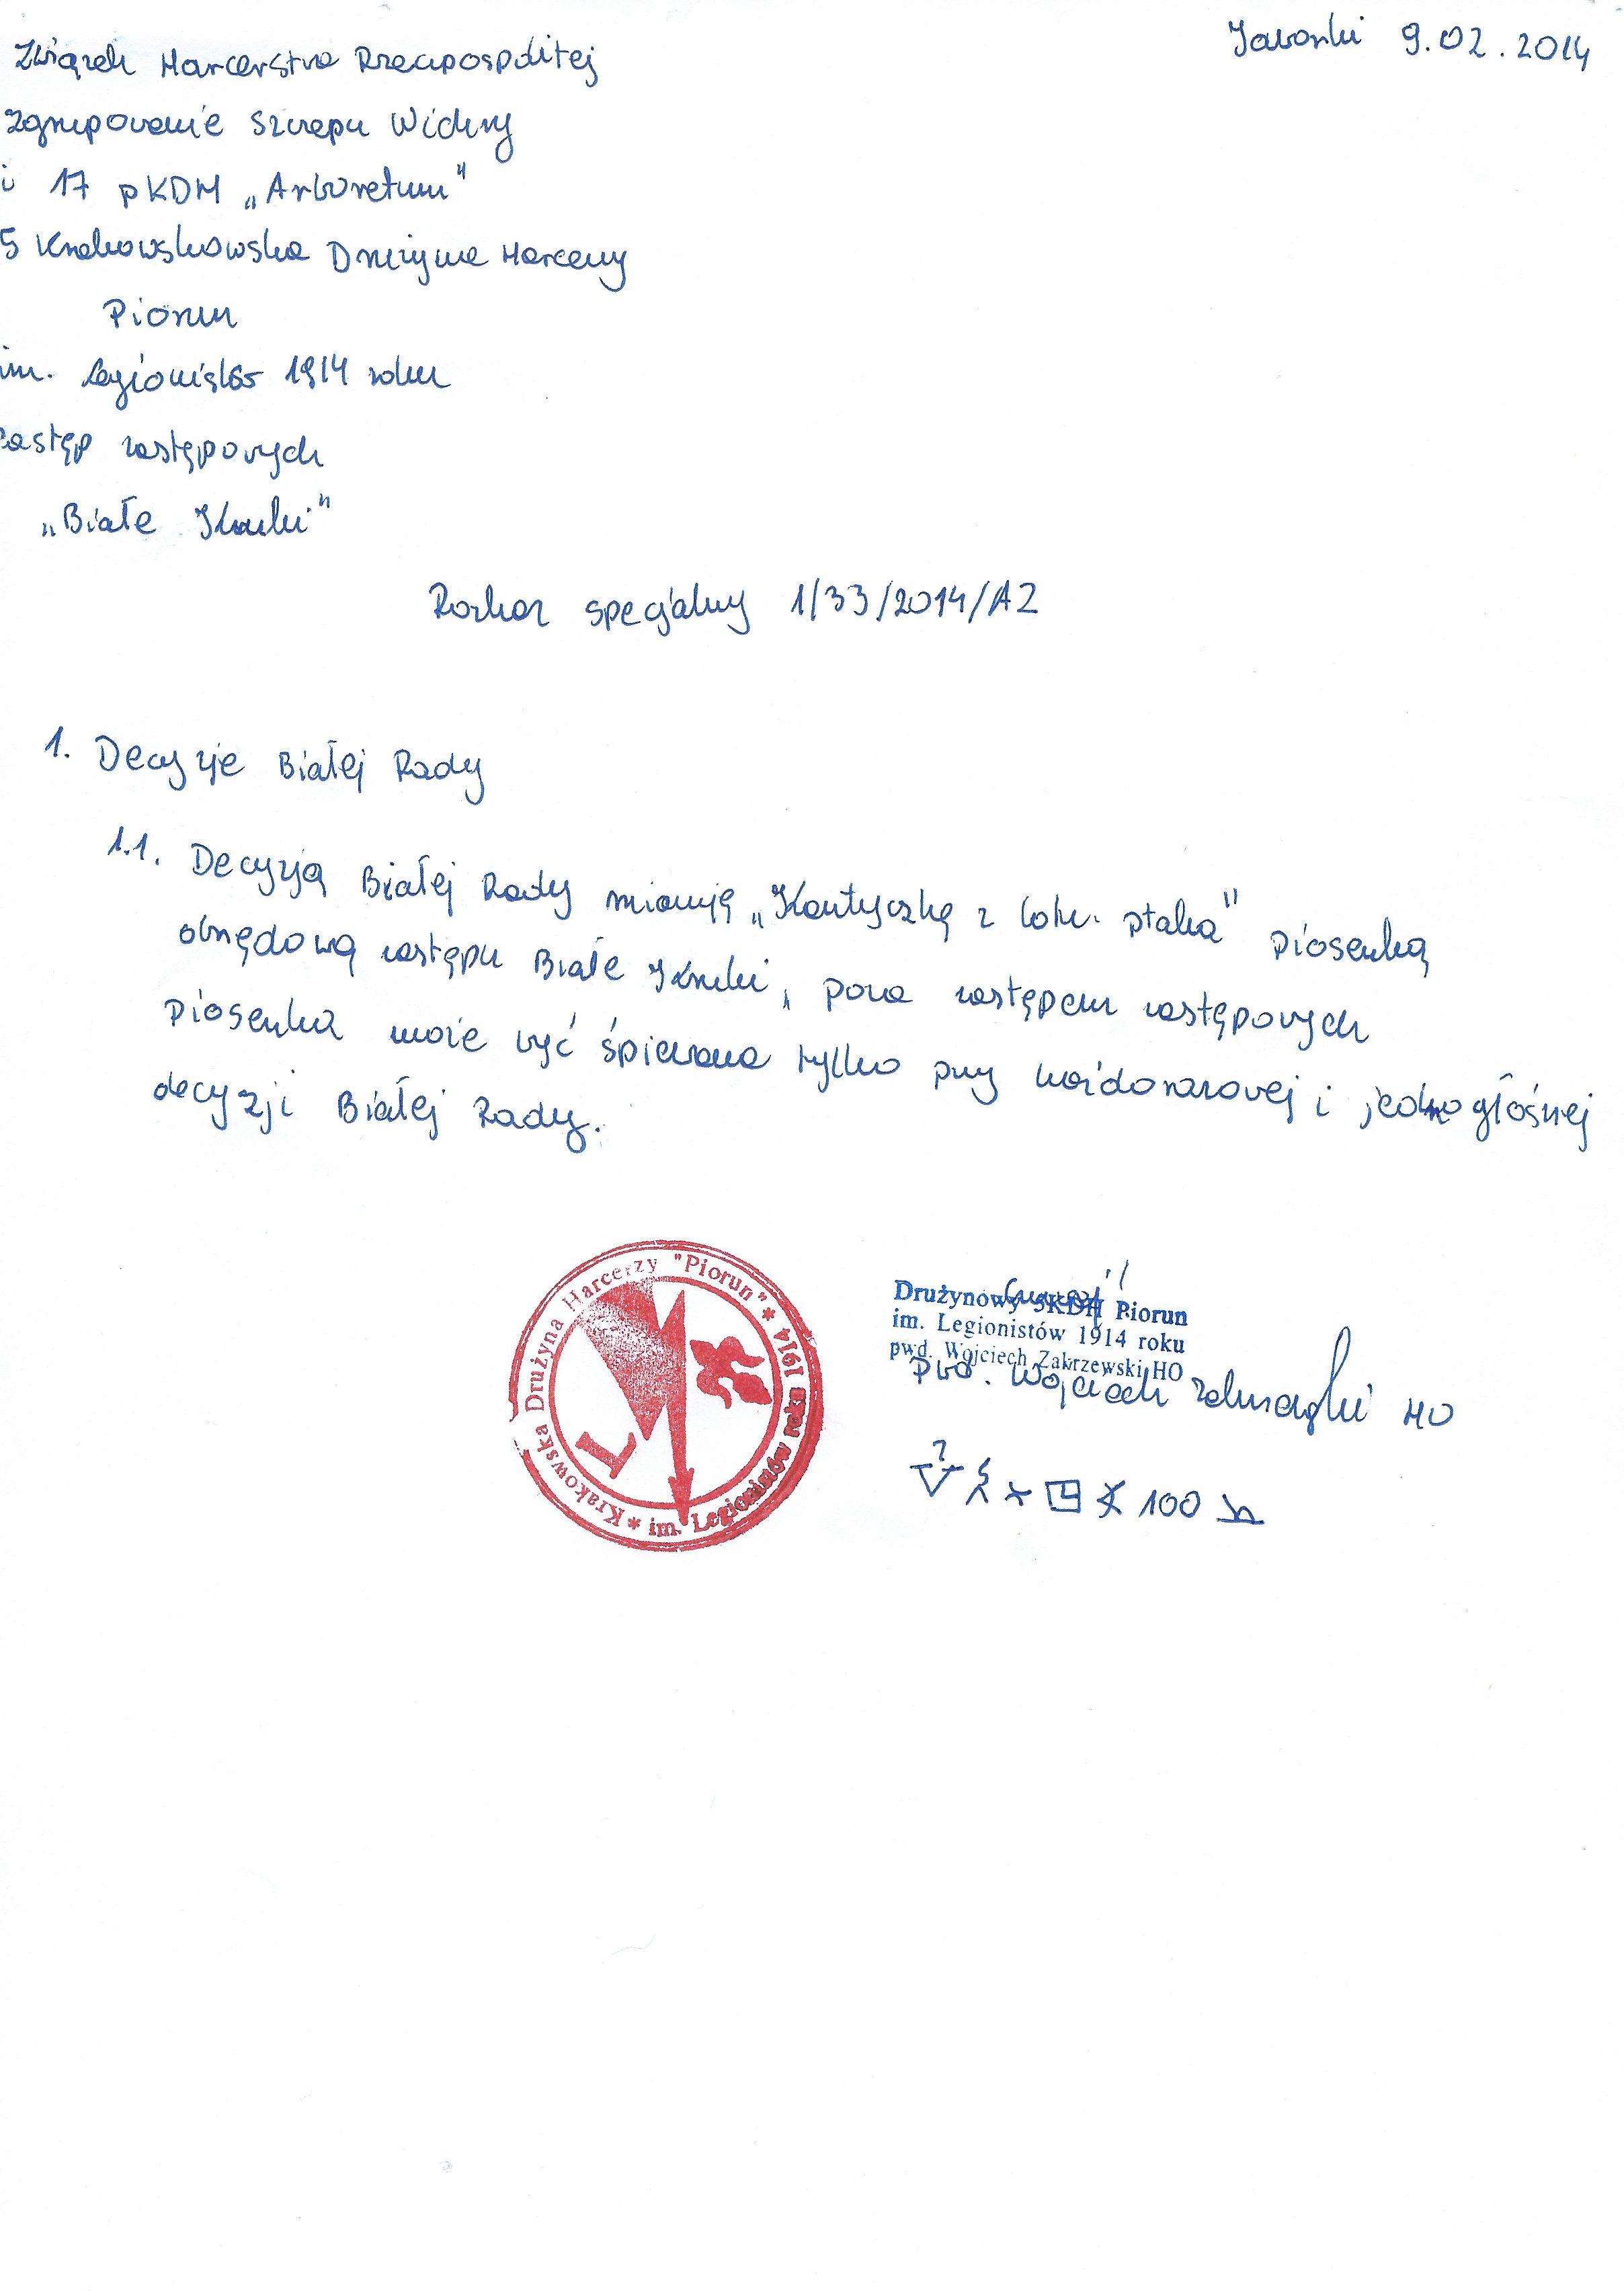 Jaworki 9.02.2014
Związek Harcerstwa Rzeczpospolitej
Zgrupowanie Szczepu Wichry
i 17 pKDH „Arboretum"
5 Krakowskowska Drużyna Harcerzy
Piorun
im. Legionistów 1914 roku
Zastęp zastępowych
„Białe Kruki"
Rozkaz specjalny 1/33/2014/AZ
1. Decyzje Białej Rady
1.1. Decyzją Białej Rady mianuję „Kantyczkę z lotu ptaka" piosenką
obrzędową zastępu Białe Kruki, poza zastępem zastępowych
piosenka może być śpiewana tylko przy każdorazowej i jednogłośnej
decyzji Białej Rady.
Krakowska Drużyna Harcerzy "Piorun" * im. Legionistów roku 1914 *
L
Czuwaj!
Drużynowy 5KDH Piorun
im. Legionistów 1914 roku
pwd. Wojciech Zakrzewski HO
pwd. Wojciech Zakrzewski HO
100